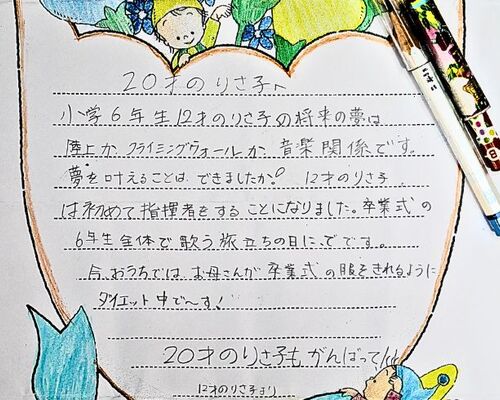 20才のりさ子へ
小学6年生12才のりさ子の将来の夢は
陸上か、クライミングウォールか、音楽関係です。
夢を叶えることは、できましたか? 12才のりさ子
は初めて指揮者をすることになりました。卒業式の
6年生全体で歌う旅立ちの日に、でです。
今、おうちでは、お母さんが卒業式の服をきれるように
ダイエット中で〜す!
20才のりさ子もがんばって!!
12才のりさ子より